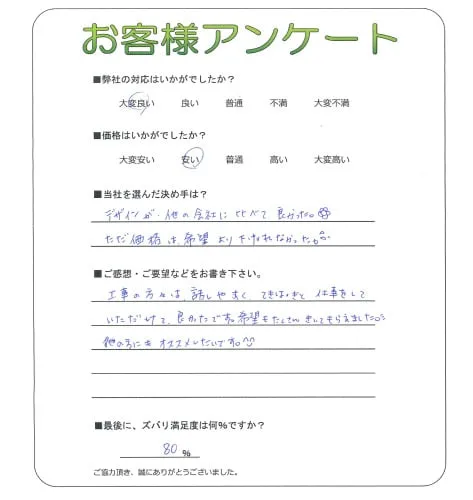 お客様アンケート
■弊社の対応はいかがでしたか？
大変良い 良い 普通 不満 大変不満
■価格はいかがでしたか？
大変安い 安い 普通 高い 大変高い
■当社を選んだ決め手は？
デザインが、他の会社に比べて良かった。
ただ価格は、希望より下がれなかった。
■ご感想・ご要望などをお書き下さい。
工事の方々は、話しやすく、てきぱきと仕事をして
いただけて、良かったです。希望もたくさんきいてもらえました。
他の方にもオススメしたいです。
■最後に、ズバリ満足度は何%ですか？
80 %
ご協力頂き、誠にありがとうございました。